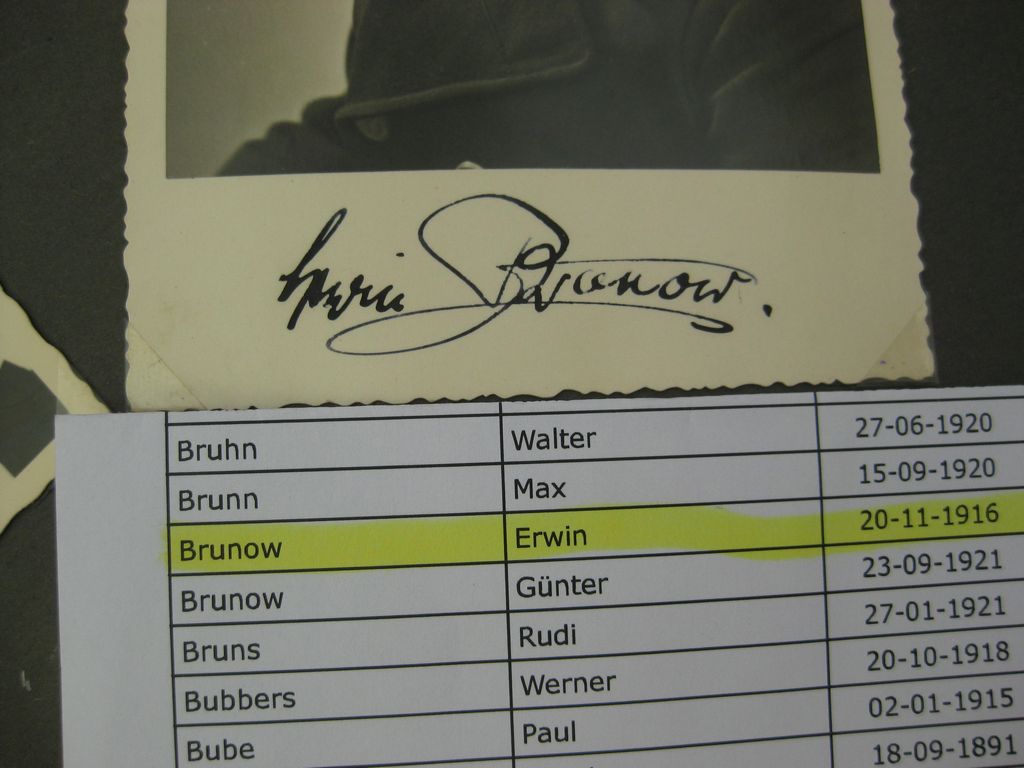 Erwin Brunow.
Bruhn Walter 27-06-1920
Brunn Max 15-09-1920
Brunow Erwin 20-11-1916
Brunow Günter 23-09-1921
Bruns Rudi 27-01-1921
Bubbers Werner 20-10-1918
Bube Paul 02-01-1915
18-09-1891